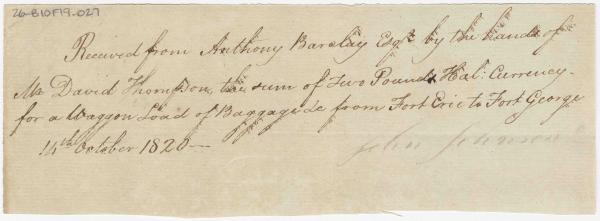 26-B10F19-027
Received from Anthony Barclay Esqr. by the hands of
Mr David Thompson the sum of two Pounds Hal: Currency.
for a Waggon Load of Baggage &c from Fort Erie to Fort George
14th October 1820 —
John